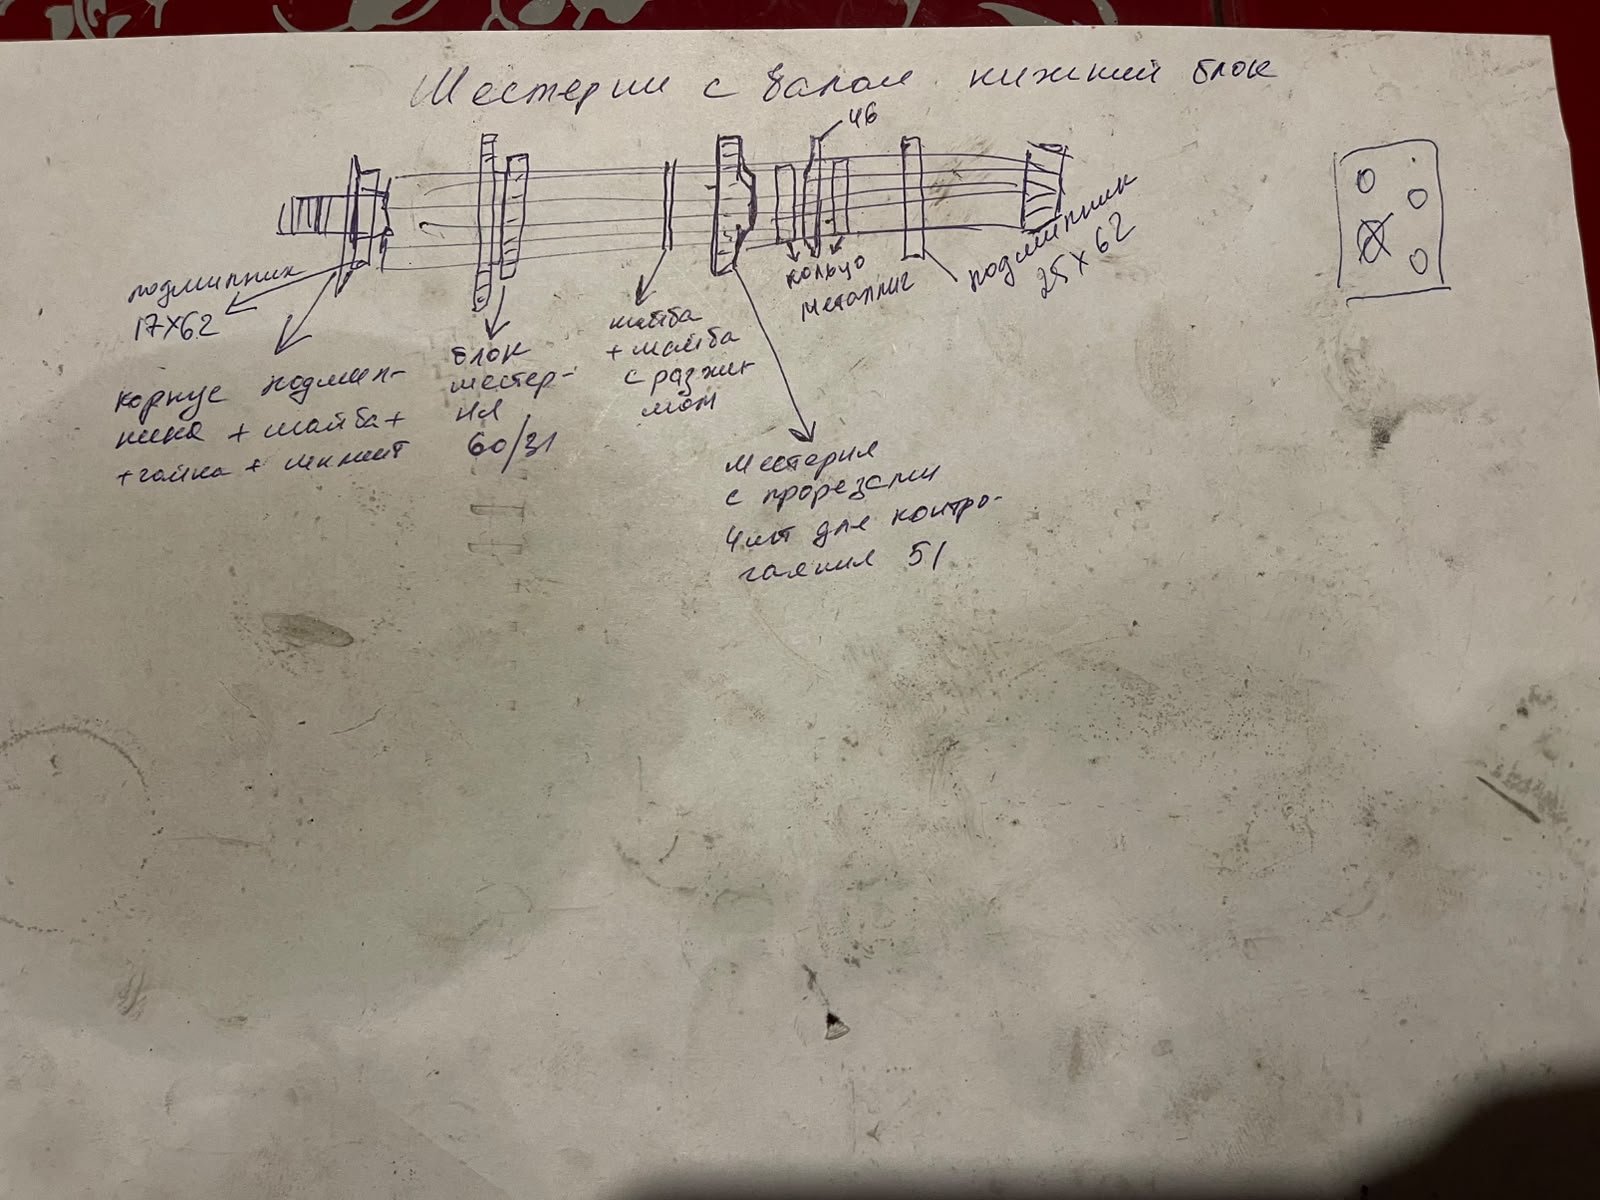 Шестерни с валом нижний блок
46
подшипник
17х62
корпус подшип-
ника + шайба +
+ гайка + шплинт
блок
шестер-
ня
60/31
шайба
+ шайба
с разжи
мом
Шестерня
с прорезами
4 шт для контро-
гаяния 51
кольцо
металлич
подшипник
25х62